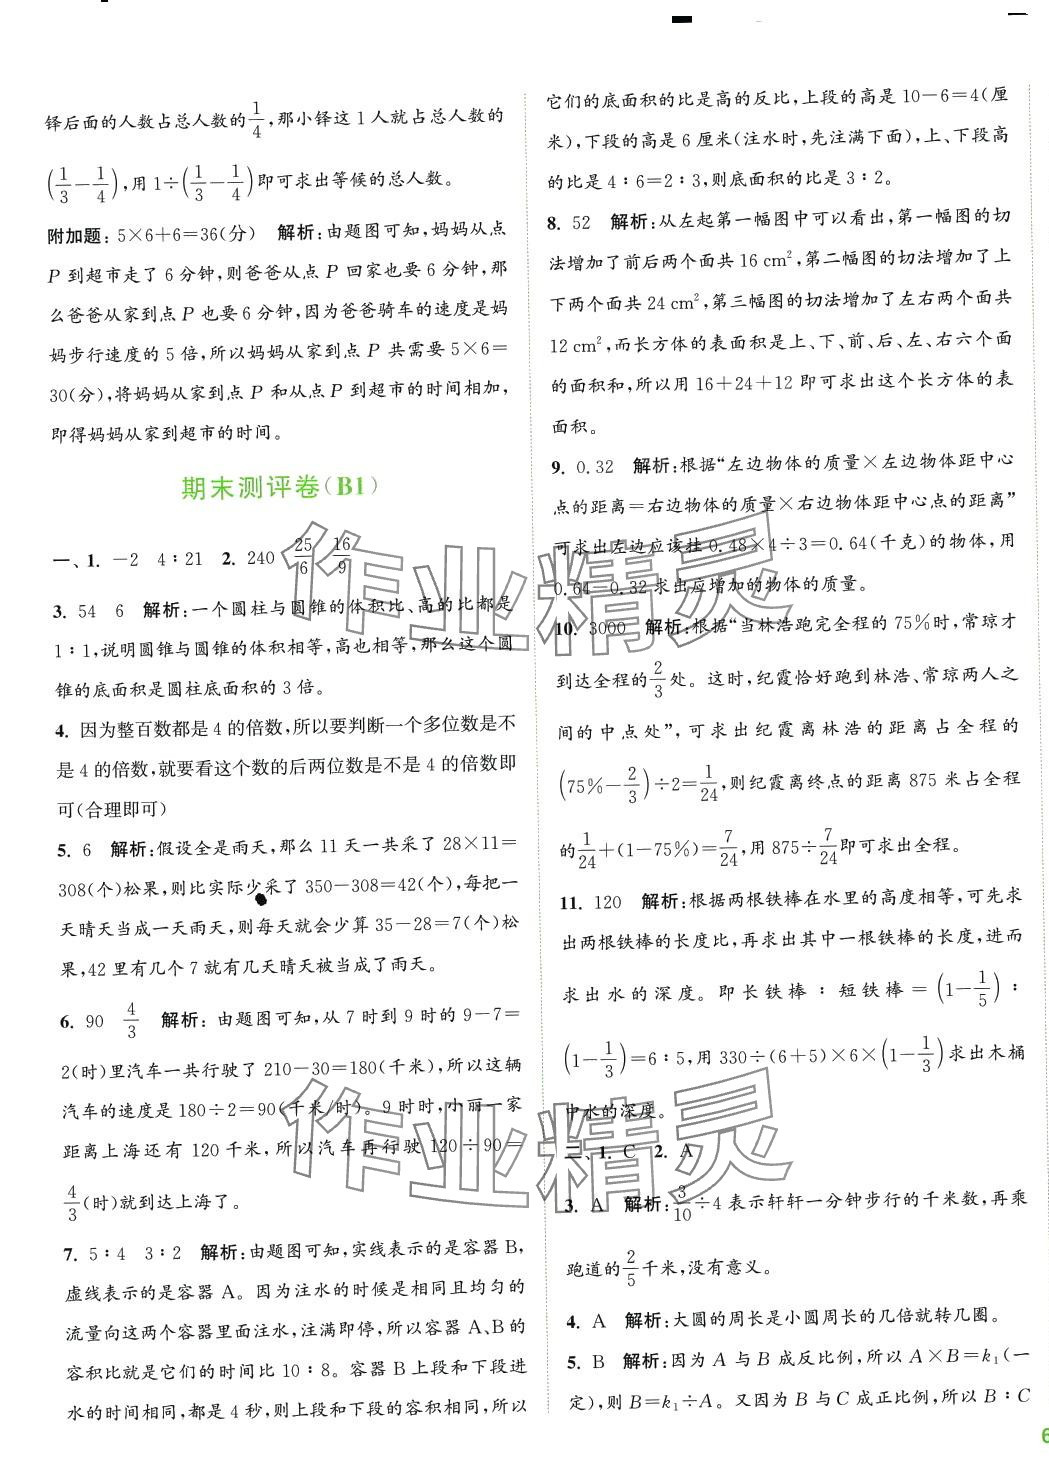 铎后面的人数占总人数的1/4,那小铎这1人就占总人数的
(1/3-1/4),用1÷(1/3-1/4)即可求出等候的总人数。
附加题:5×6+6=36(分) 解析:由题图可知,妈妈从点
P到超市走了6分钟,则爸爸从点P回家也要6分钟,那
么爸爸从家到点P也要6分钟,因为爸爸骑车的速度是妈
妈步行速度的5倍,所以妈妈从家到点P共需要5×6=
30(分),将妈妈从家到点P和从点P到超市的时间相加,
即得妈妈从家到超市的时间。
期末测评卷(B1)
一、1. -2 4∶21 2. 240 25/6 16/9
3. 54 6 解析:一个圆柱与圆锥的体积比、高的比都是
1∶1,说明圆锥与圆锥的体积相等,高也相等,那么这个圆
锥的底面积是圆柱底面积的3倍。
4. 因为整百数都是4的倍数,所以要判断一个多位数是不
是4的倍数,就要看这个数的后两位数是不是4的倍数即
可(合理即可)
5. 6 解析:假设全是雨天,那么11天一共采了28×11=
308(个)松果,则比实际少采了350-308=42(个),每把一
天晴天当成一天雨天,则每天就会少算35-28=7(个)松
果,42里有几个7就有几天晴天被当成了雨天。
6. 90 4/3 解析:由题图可知,从7时到9时的9-7=
2(时)里汽车一共行驶了210-30=180(千米),所以这辆
汽车的速度是180÷2=90(千米/时)。9时时,小丽一家
距离上海还有120千米,所以汽车再行驶120÷90=
4/3(时)就到达上海了。
7. 5∶4 3∶2 解析:由题图可知,实线表示的是容器B,
虚线表示的是容器A。因为注水的时候是相同且均匀的
流量向这两个容器里面注水,注满即停,所以容器A、B的
容积比就是它们的时间比10∶8。容器B上段和下段进
水的时间相同,都是4秒,则上段和下段的容积相同,所以
它们的底面积的比是高的反比,上段的高是10-6=4(厘
米),下段的高是6厘米(注水时,先注满下面),上、下段高
的比是4∶6=2∶3,则底面积的比是3∶2。
8. 52 解析:从左起第一幅图中可以看出,第一幅图的切
法增加了前后两个面共16 cm²,第二幅图的切法增加了上
下两个面共24 cm²,第三幅图的切法增加了左右两个面共
12 cm²,而长方体的表面积是上、下、前、后、左、右六个面
的面积和,所以用16+24+12即可求出这个长方体的表
面积。
9. 0.32 解析:根据“左边物体的质量×左边物体距中心
点的距离=右边物体的质量×右边物体距中心点的距离”
可求出左边应该挂0.48×4÷3=0.64(千克)的物体,用
0.64-0.32求出应增加的物体的质量。
10. 3000 解析:根据“当林浩跑完全程的75%时,常琼才
到达全程的2/3处。这时,纪霞恰好跑到林浩、常琼两人之
间的中点处”,可求出纪霞离林浩的距离占全程的
(75%-2/3)÷2=1/24,则纪霞离终点的距离875米占全程
的1/24+(1-75%)=7/24,用875÷7/24即可求出全程。
11. 120 解析:根据两根铁棒在水里的高度相等,可先求
出两根铁棒的长度比,再求出其中一根铁棒的长度,进而
求出水的深度。即长铁棒∶短铁棒=(1-1/5)∶
(1-1/3)=6∶5,用330÷(6+5)×6×(1-1/3)求出木桶
中水的深度。
二、1. C 2. A
3. A 解析:3/10÷4表示轩轩一分钟步行的千米数,再乘
跑道的2/5千米,没有意义。
4. A 解析:大圆的周长是小圆周长的几倍就转几圈。
5. B 解析:因为A与B成反比例,所以A×B=k₁(一
定),则B=k₁÷A。又因为B与C成正比例,所以B∶C
6
作业精灵
作业精灵